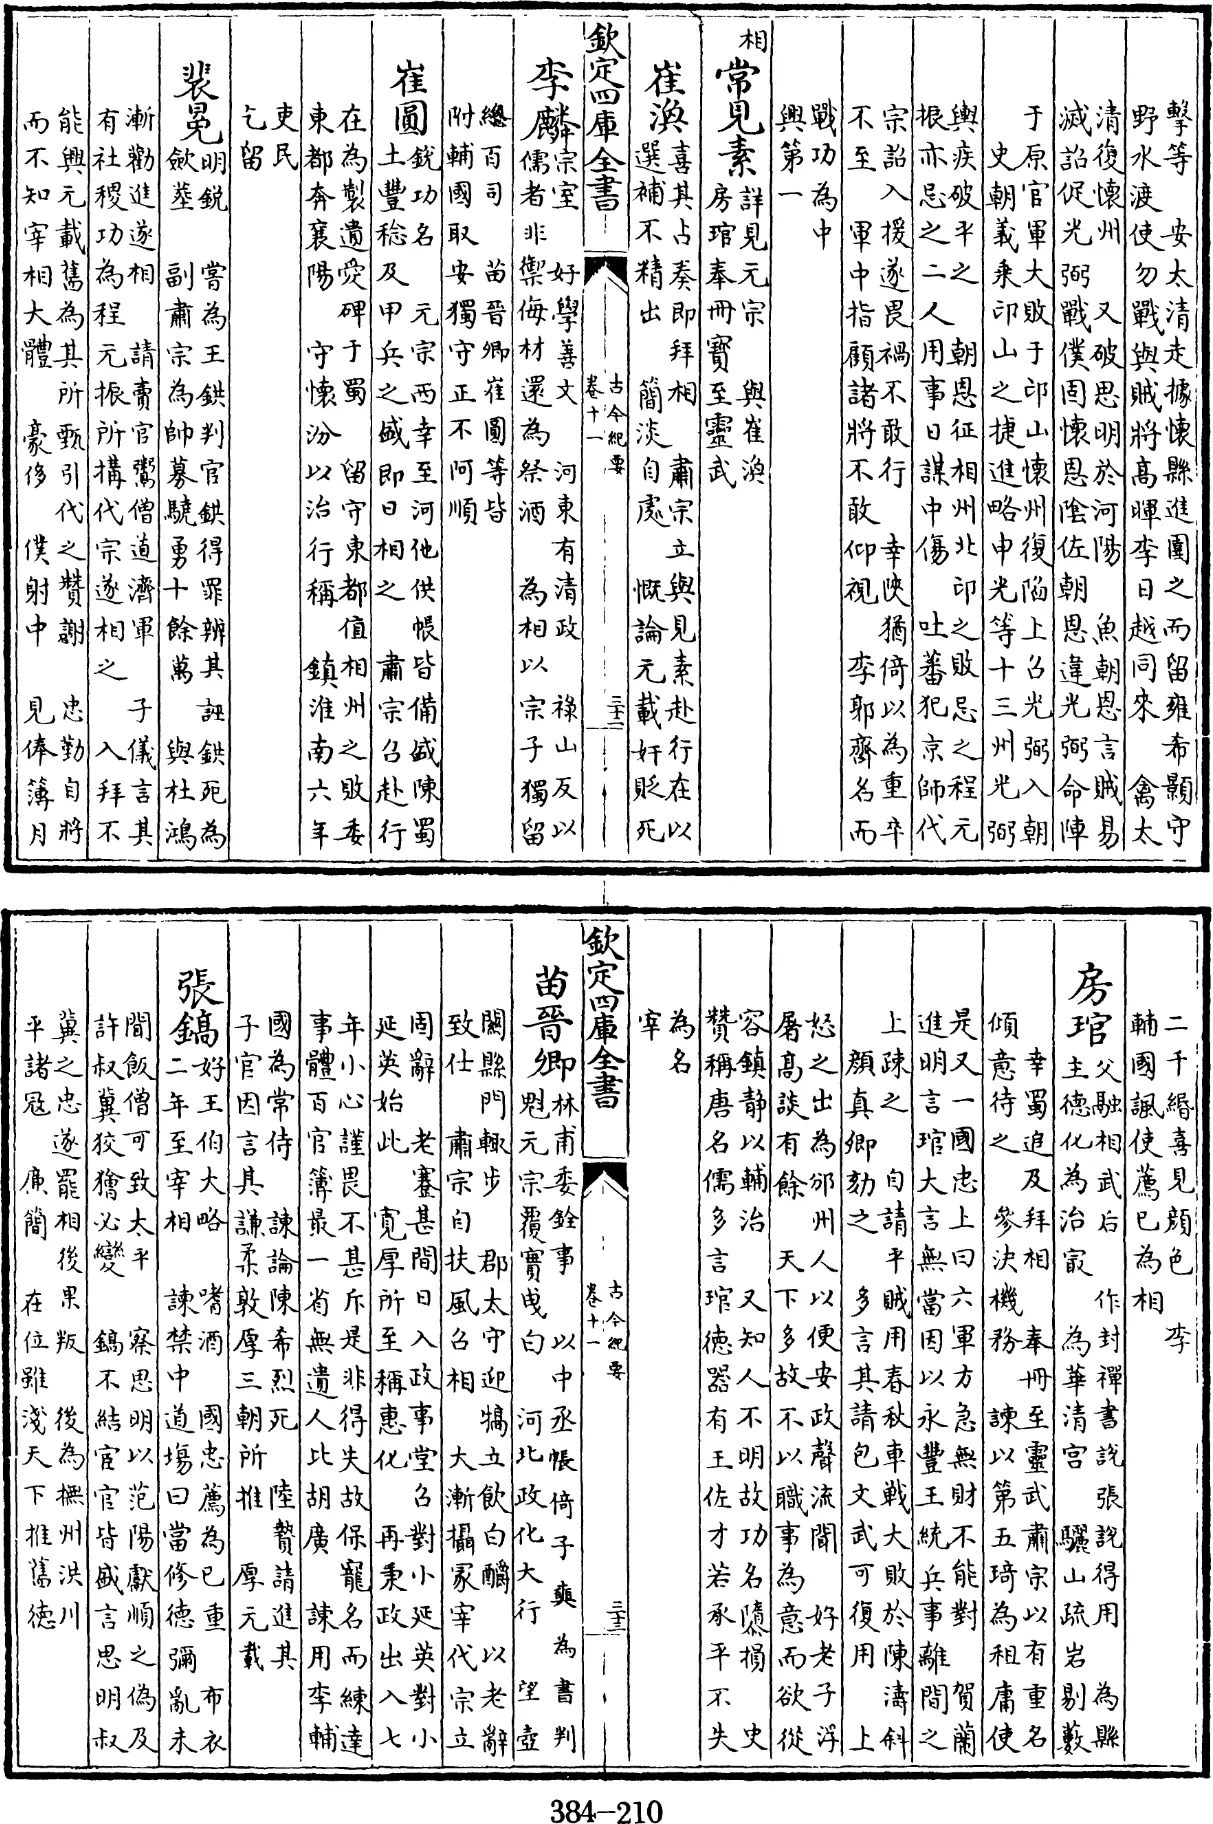 擊等　安太清走據懷縣進圍之而留雍希顥守
野水渡使勿戰與賊將高暉李日越同來　禽太
清復懷州　又破思明於河陽　魚朝恩言賊易
滅詔促光弼戰僕固懷恩陰佐朝恩違光弼命陣
于原官軍大敗于邙山懷州復陷上召光弼入朝
史朝義乗邙山之捷進略申光等十三州光弼
輿疾破平之　朝恩征相州北邙之敗忌之程元
振亦忌之二人用事日謀中傷　吐蕃犯京師代
宗詔入援遂畏禍不敢行　幸陜猶倚以為重卒
不至　軍中指顧諸將不敢仰視　李郭齊名而
戰功為中
興第一
相
常見素
詳見元宗　與崔渙
房琯奉冊寳至靈武
崔渙
喜其占奏即拜相　肅宗立與見素赴行在以
選補不精出　簡淡自處　慨論元載奸貶死
欽定四庫全書　古今紀要
卷十一　三十二
李麟
宗室　好學善文　河東有清政　禄山反以
儒者非禦侮材還為祭酒　為相以宗子獨留
總百司　苗晉卿崔圓等皆
附輔國取安獨守正不阿順
崔圓
銳功名　元宗西幸至河池供帳皆備盛陳蜀
土豐稔及甲兵之盛即日相之　肅宗召赴行
在為製遺愛碑于蜀　留守東都值相州之敗委
東都奔襄陽　守懷汾以治行稱　鎮淮南六年
吏民
乞留
裴冕
明銳　嘗為王鉷判官鉷得罪辨其誣鉷死為
歛葬　副肅宗為帥募驍勇十餘萬　與杜鴻
漸勸進遂相　請賣官鬻僧道濟軍　子儀言其
有社稷功為程元振所搆代宗遂相之　入拜不
能興元載舊為其所甄引代之贊謝　忠勤自將
而不知宰相大體　豪侈　僕射中　見俸簿月
二千緡喜見顔色　李
輔國諷使薦已為相
房琯
父融相武后　作封禪書說張說得用　為縣
主德化為治㝡　為華清宫　驪山疏岩剔藪
幸蜀追及拜相　奉冊至靈武肅宗以有重名
傾意待之　參決機務　諫以第五琦為租庸使
是又一國忠上曰六軍方急無財不能對　賀蘭
進明言琯大言無當因以永豐王統兵事離間之
上疎之　自請平賊用春秋車戰大敗於陳濤斜
顔真卿劾之　多言其請包文武可復用　上
怒之出為邠州人以便安政聲流聞　好老子浮
屠高談有餘　天下多故不以職事為意而欲從
容鎮静以輔治　又知人不明故功名隳損　史
贊稱唐名儒多言琯德器有王佐才若承平不失
為名
宰
欽定四庫全書　古今紀要
卷十一　三十三
苗晉卿
林甫委銓事　以中丞帳倚子奭為書判
魁元宗覆實曵白　河北政化大行　望壺
關縣門輙步　郡太守迎犒立飲白酳　以老辭
致仕　肅宗自扶風召相　大漸攝冢宰代宗立
固辭　老蹇甚間日入政事堂召對小延英對小
延英始此　寛厚所至稱惠化　再秉政出入七
年小心謹畏不甚斥是非得失故保寵名而練達
事體百官簿最一省無遺人比胡廣　諫用李輔
國為常侍　諫論陳希烈死　陸贄請進其
子官因言其謙柔敦厚三朝所推　厚元載
張鎬
好王伯大略　嗜酒　國忠薦為已重　布衣
二年至宰相　諫禁中道塲曰當修德彌亂未
聞飯僧可致太平　察思明以范陽獻順之偽及
許叔冀狡獪必變　鎬不結宦官皆盛言思明叔
冀之忠遂罷相後果叛　後為撫州洪川
平諸冦　廉簡　在位雖淺天下推舊德
384-210